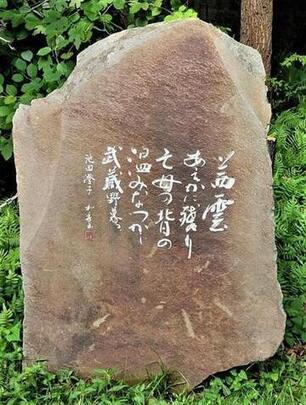 茜雲
あえかに残り
亡母の背の
温みなつかし
武蔵野暮るる
池田澄子